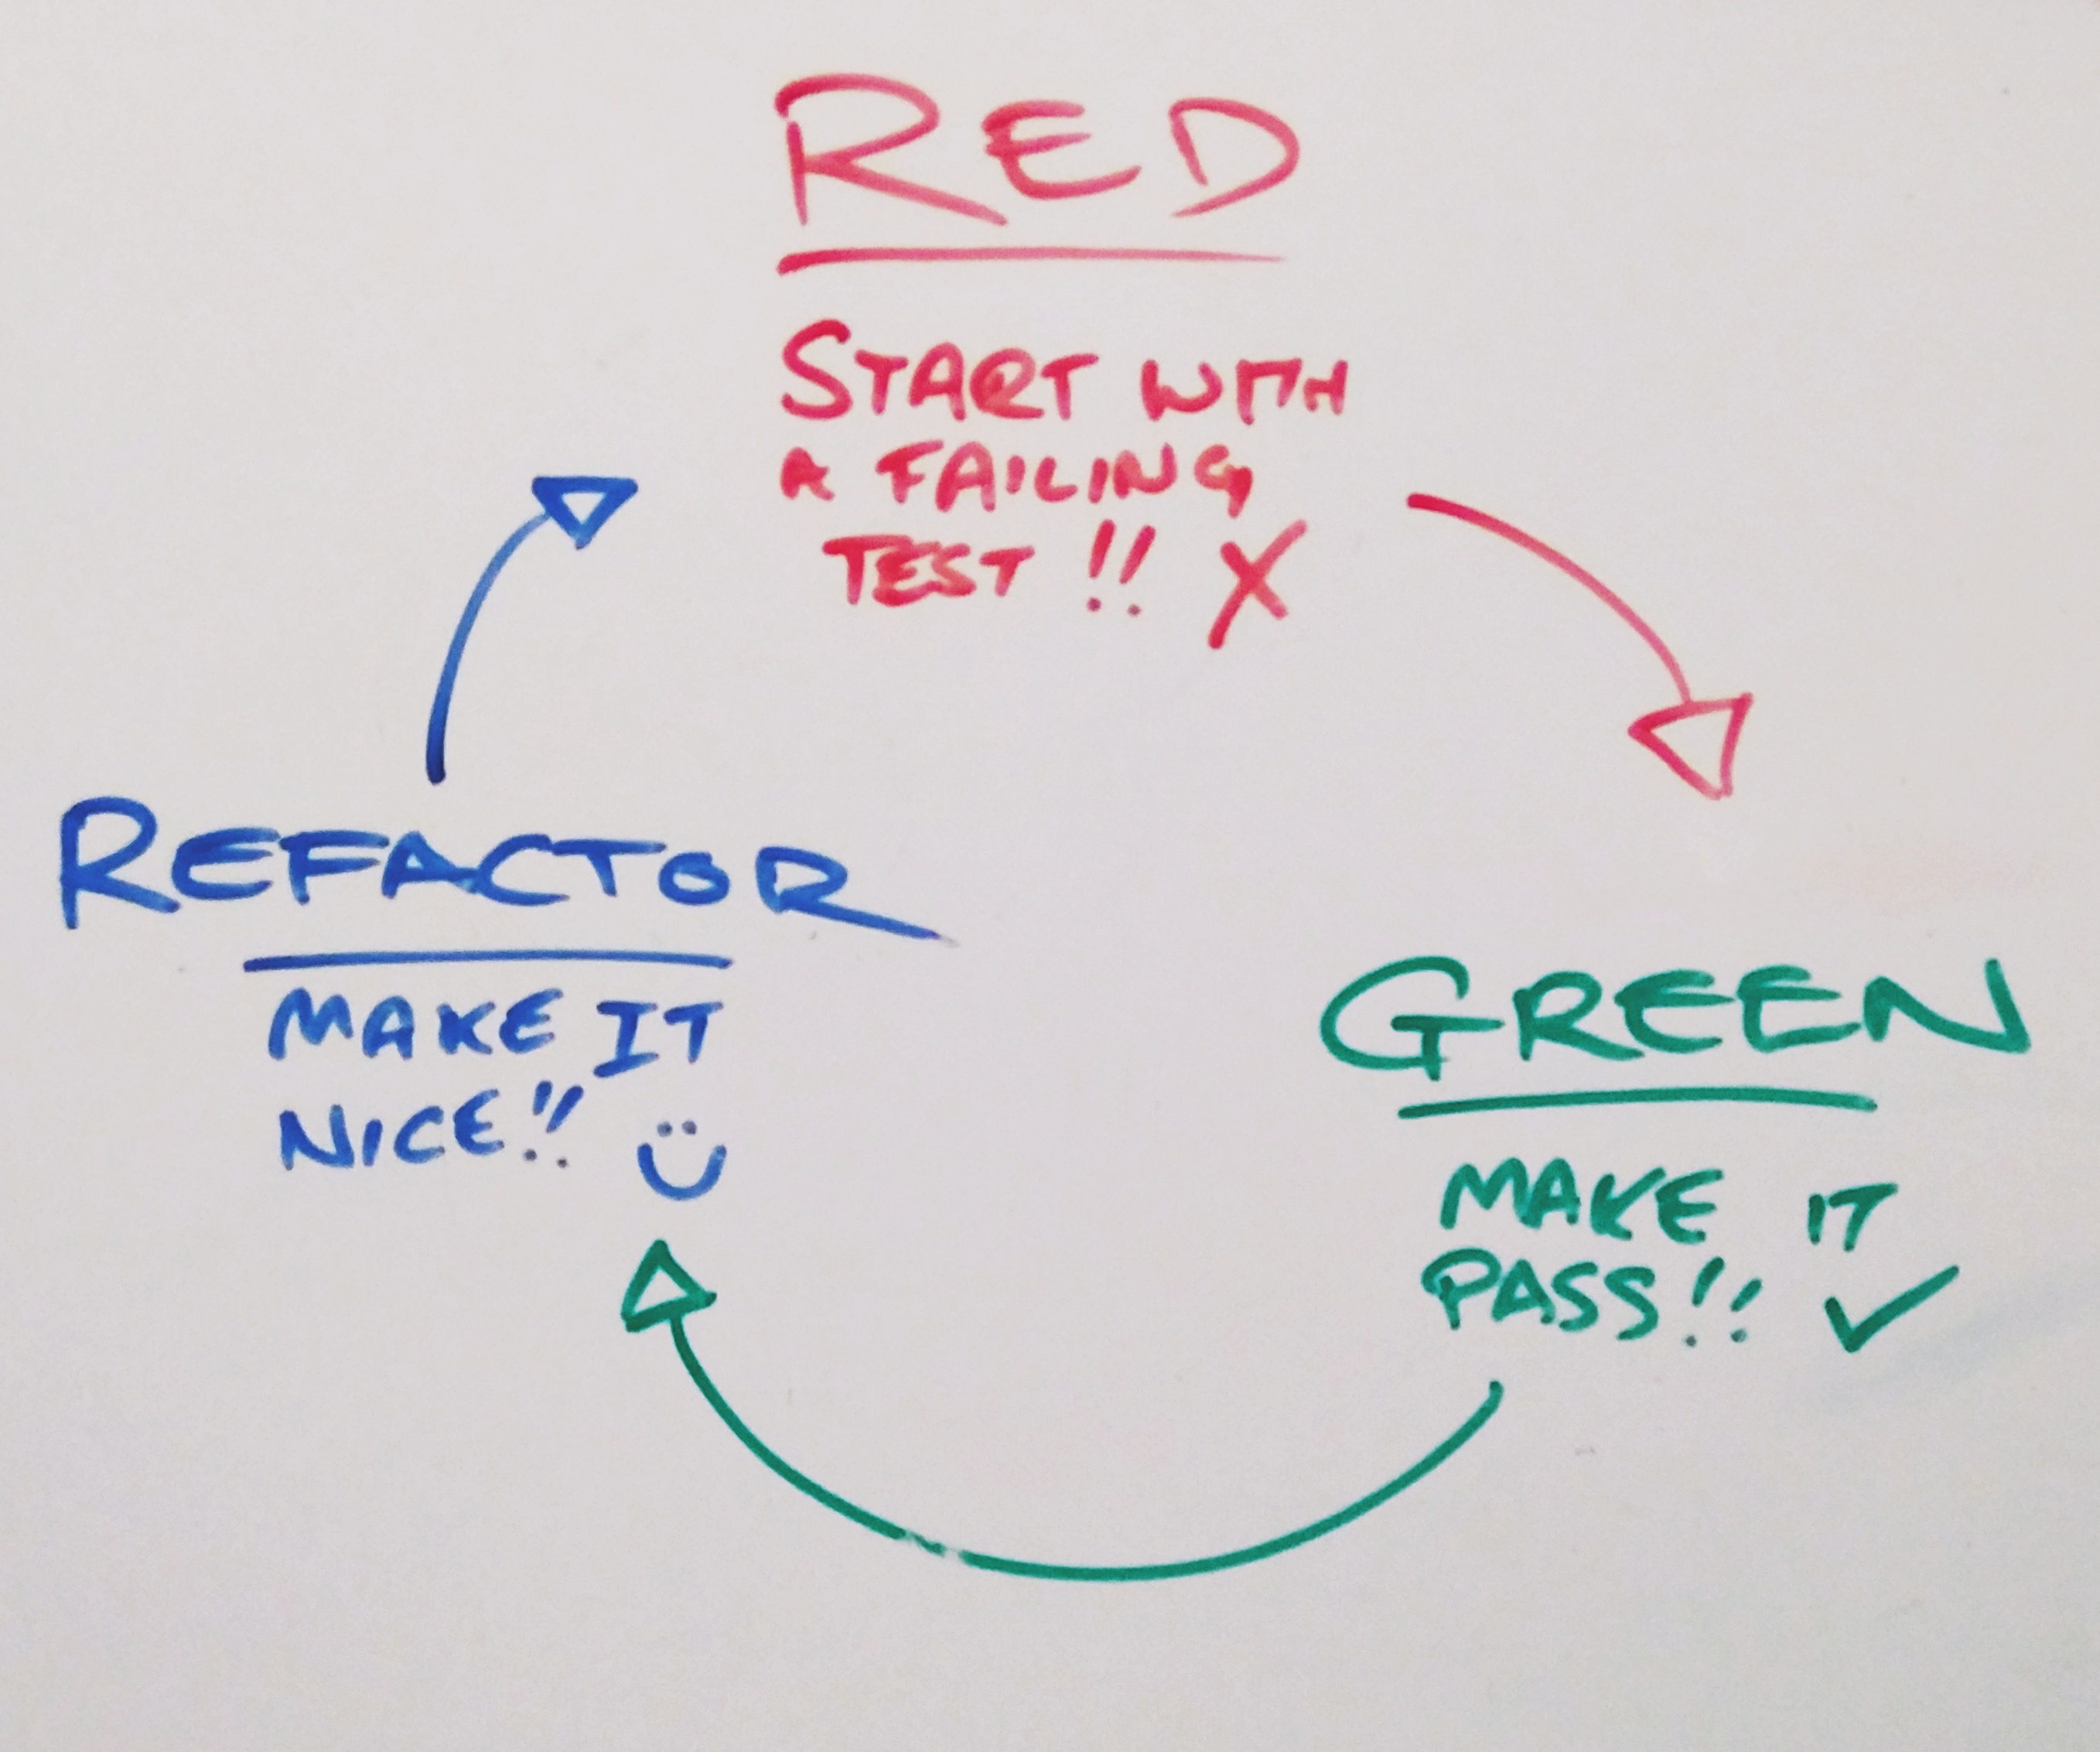 RED
START WITH
A FAILING
TEST!! X
GREEN
MAKE IT
PASS!! ✓
REFACTOR
MAKE IT
NICE!!